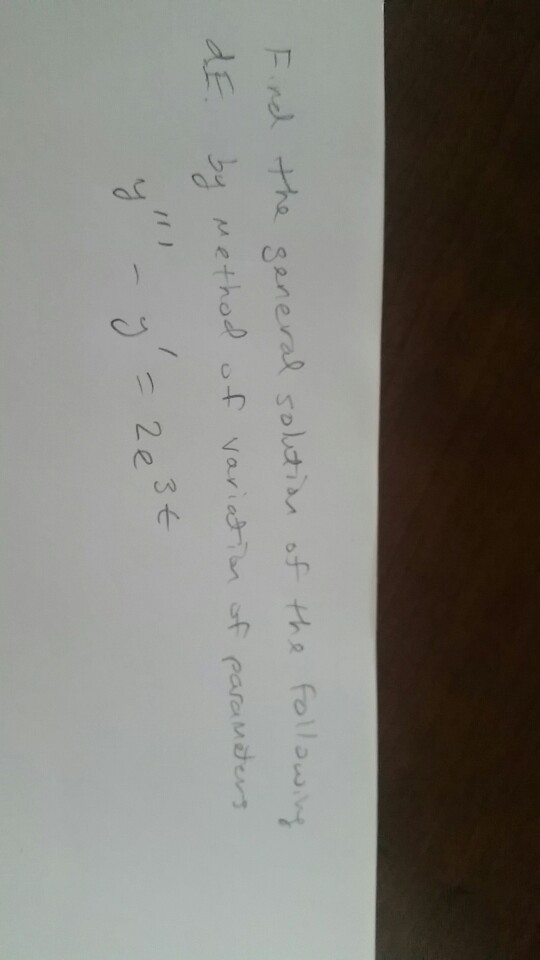 Find the general solution of the following
d.E. by method of variation of parameters
y''' - y' = 2e^3t